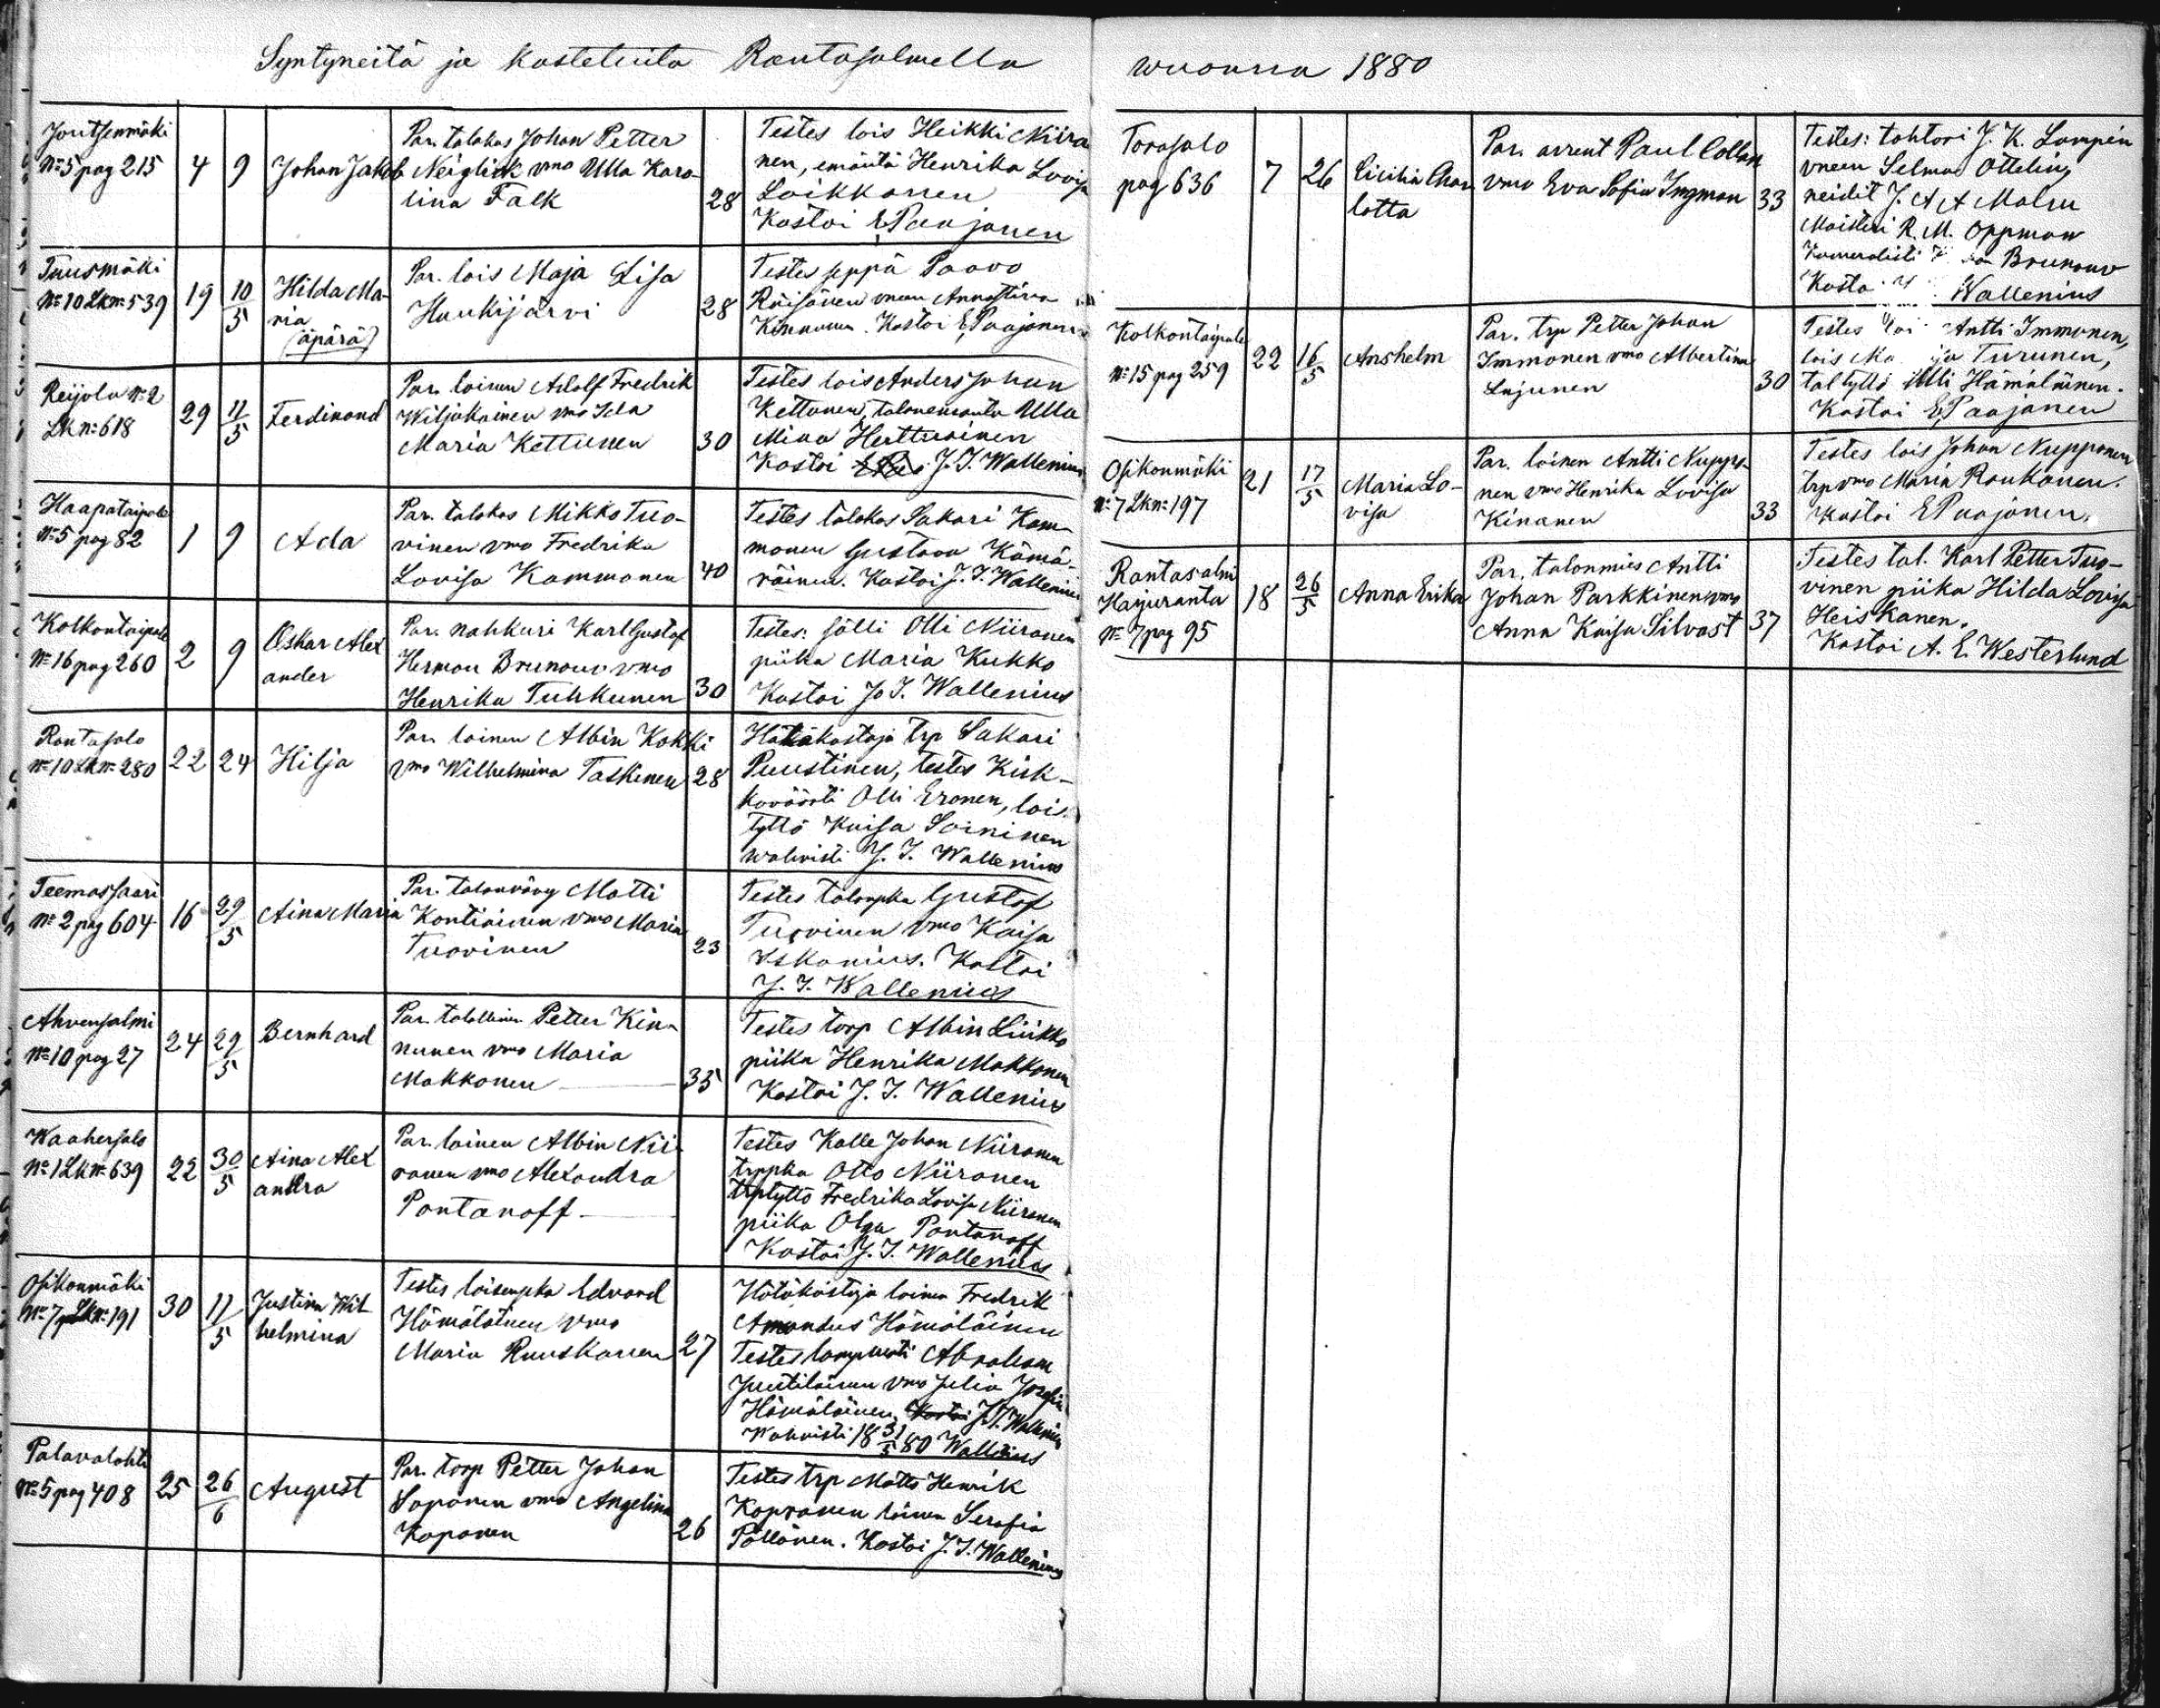 Syntyneitä ja kastetuita Rantasalmella
Joutsenmäki
№ 5 pag 215
4
9
Johan Jakob
Par. talokas Johan Petter
Neiglick vmo Ulla Karo-
lina Falk
28
Testes lois Heikki Niira
nen, emäntä Henrika Lovisa
Loikkanen
Kastoi E Paajanen
Tuusmäki
№ 10 Lk№ 539
19
10/5
Hilda Ma-
ria
(äpärä)
Par. lois Maja Lisa
Haukijärvi
28
Testes seppä Paavo
Räisänen vmon Anna Stina
Kinnunen. Kastoi E, Paajanen
Reijola № 2
Lk №: 618
29
11/5
Ferdinand
Par. loinen Adolf Fredrik
Wiljakainen vmo Ida
Maria Kettunen
30
Testes lois Anders Johan
Kettunen, talonemäntä Ulla
Mina Herttuainen
Kastoi J. I. Wallenius
Haapataipale
№ 5 pag 82
1
9
Ada
Par. talokas Mikko Tuo-
vinen vmo Fredrika
Lovisa Kammonen
40
Testes talokas Sakari Kam-
monen Gustava Kämä-
räinen. Kastoi J. I. Wallenius
Kolkontaipale
№ 16 pag 260
2
9
Oskar Alex
ander
Par. nahkuri Karl Gustaf
Herman Brunouv vmo
Henrika Tuhkunen
30
Testes: sälli Olli Niiranen
piika Maria Kukko
Kastoi Jo I. Wallenius
Rantasalo
№ 10 Lk№ 280
22
24
Hilja
Par. loinen Albin Kokki
vmo Wilhelmina Taskinen
28
Hätäkastaja trp Sakari
Puustinen, testes Kirk-
koväästi Olli Eronen, lois.
tyttö Kaisa Soininen
wahvisti J. I. Wallenius
Teemassaari
№ 2 pag 604
16
29/5
Aina Maria
Par. talonvävy Matti
Kontiainen vmo Maria
Tuovinen
23
Testes talonpka Gustaf
Tuovinen vmo Kaisa
Kastoi
J. I. Wallenius
Ahvensalmi
№ 10 pag 27
24
29/5
Bernhard
Par. talollinen Petter Kin-
nunen vmo Maria
Makkonen
35
Testes torp Albin Liukko
piika Henrika Makkonen
Kastoi J. I. Wallenius
Waahersalo
№ 1 Lk№ 639
22
30/5
Aina Alex
andra
Par. loinen Albin Nii-
ranen vmo Alexandra
Pontanoff
Testes Kalle Johan Niiranen
trppka Otto Niiranen
trptyttö Fredrika Lovisa Niiranen
piika Olga Pontanoff
Kastoi J. I. Wallenius
Osikonmäki
№ 7 Lk№ 191
30
11/5
Justina Wil
helmina
Testes loisenpka Edvard
Hämäläinen vmo
Maria Ruuskanen
27
Hätäkastaja loinen Fredrik
Amandus Hämäläinen
Testes lampuoti Abraham
Juutilainen vmo Julia Josefina
Hämäläinen. Kastoi J. I. Wallenius
Wahvisti 18 31/5 80 Wallenius
Palavalahti
№ 5 pag 408
25
26/6
August
Par. torp Petter Johan
Saponen vmo Angelina
Koponen
26
Testes trp Matts Henrik
loinen Serafia
Pöllänen. Kastoi J. I. Wallenius
wuonna 1880
Torasalo
pag 636
7
26
Cicilia Char
lotta
Par. arrent Paul Collan
vmo Eva Sofia Ingman
33
Testes: tohtori J. K. Lampén
vneen Selma Ottelin,
neidit J. A A Malm
Maisteri R. M. Oppman
Brunouv
Wallenius
Kolkontaipale
№ 15 pag 259
22
16/5
Anshelm
Par. trp Petter Johan
Immonen vmo Albertina
Lajunen
30
Testes Antti Immonen,
lois Turunen,
taltyttö Hämäläinen.
Kastoi E, Paajanen
Osikonmäki
№ 7 Lk№ 197
21
17/5
Maria Lo-
visa
Par. loinen Antti Nuppo-
nen vmo Henrika Lovisa
Kinanen
33
Testes lois Johan Nupponen
trpvmo Maria Raukonen.
Kastoi E Paajanen.
Rantasalmi
Harjuranta
№ 7 pag 95
18
26/5
Anna Erika
Par. talonmies Antti
Johan Parkkinen vmo
Anna Kaisa Silvast
37
Testes tal. Karl Petter Tuo-
vinen piika Hilda Lovisa
Heiskanen.
Kastoi A. E. Westerlund